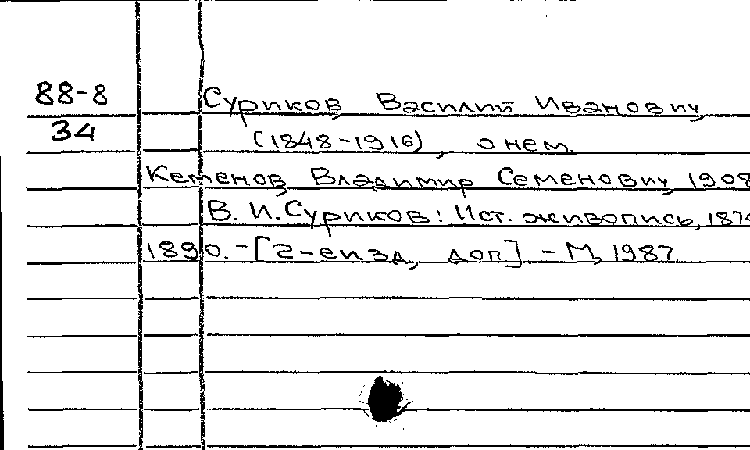 88-8 Суриков, Василий Иванович
34 (1848-1916), о нем.
Кеменов, Владимир Семенович, 1908
В. И. Суриков: Ист. живопись, 187
1890. - [2-е изд, доп] - М, 1987